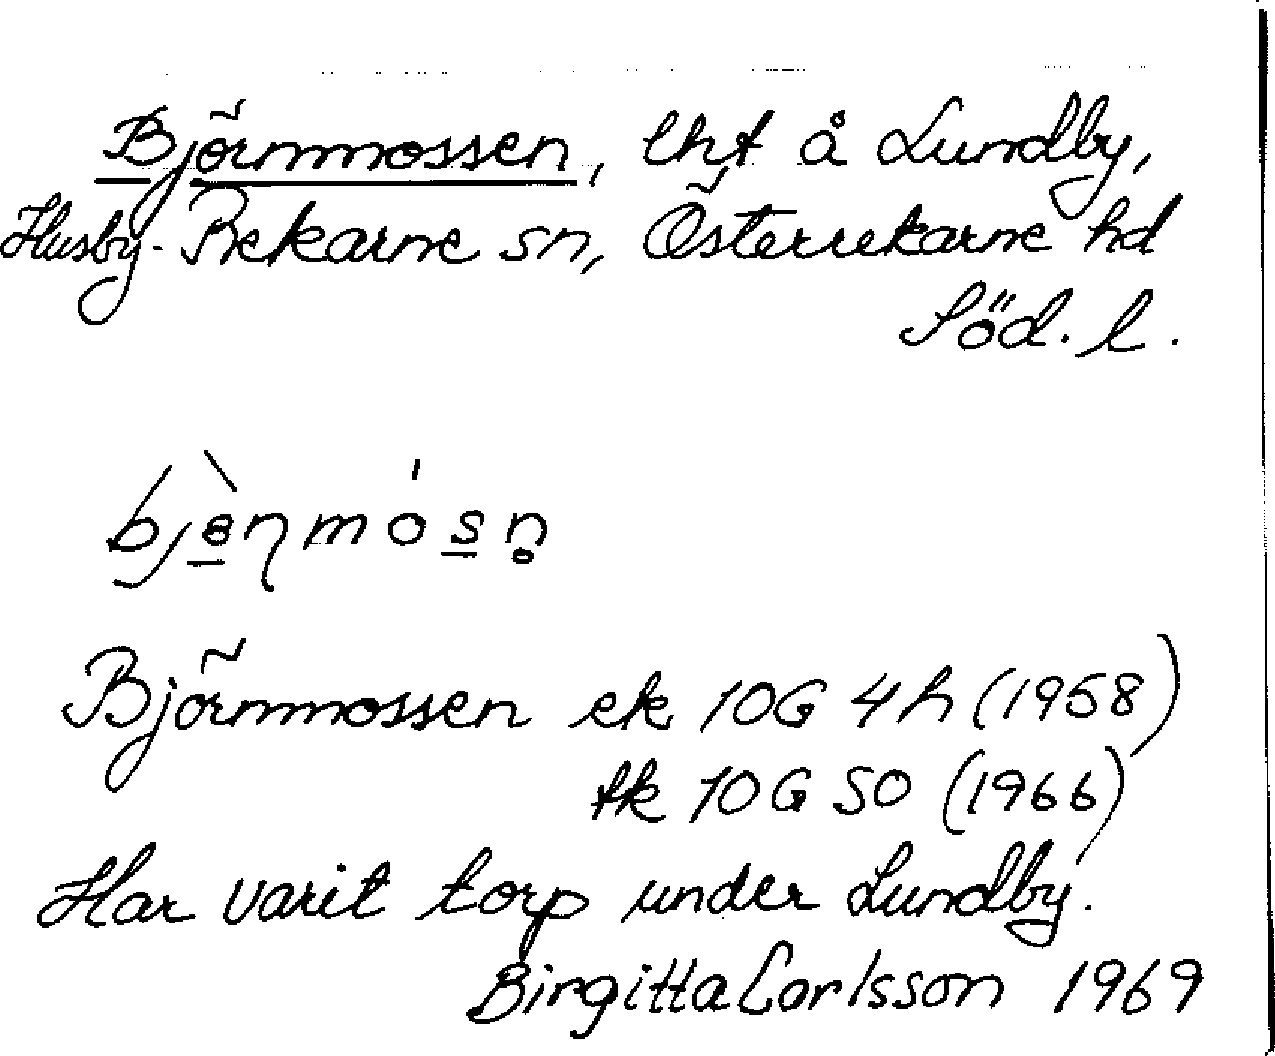 Björnmossen, lht å Lundby,
Husby-Rekarne sn, Österrekarne hd
Söd. l.
bjènmósn̥
Björnmossen ek 10G 4h (1958)
tk 10G SO (1966)
Har varit torp under Lundby.
Birgitta Carlsson 1969